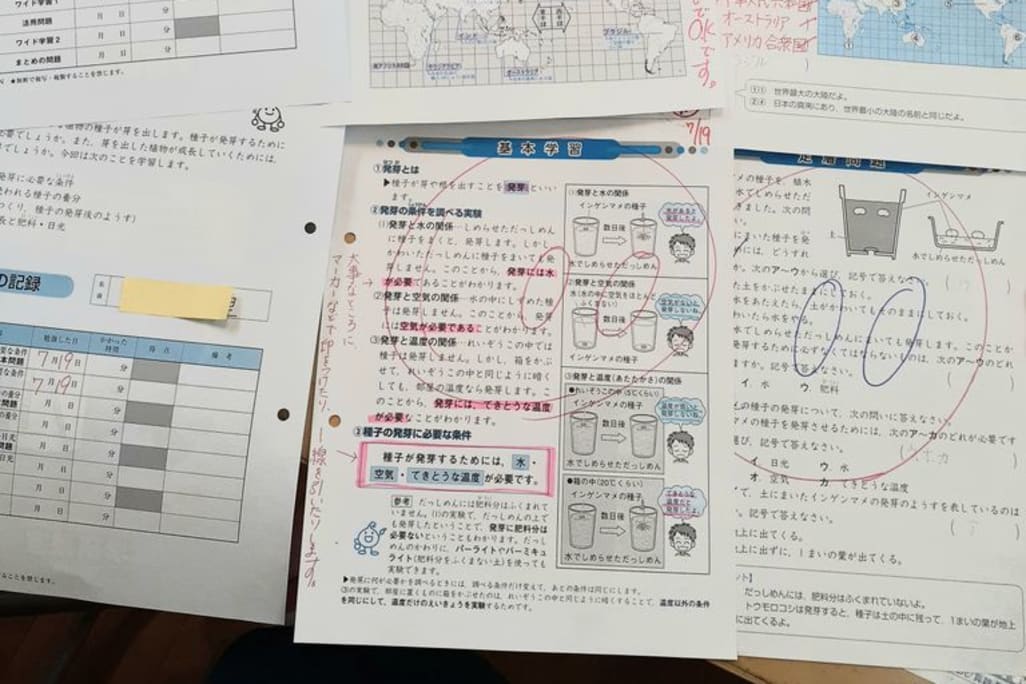 ワイド学習1
月 日 分
活用問題
月 日 分
ワイド学習2
月 日 分
まとめの問題
月 日 分
★無断で複写・複製することを禁じます。
植物の種子が芽を出します。種子が発芽するために
必要でしょうか。また、芽を出した植物が成長していくためには、
でしょうか。今回は次のことを学習します。
発芽に必要な条件
使われる種子の養分
つくり、種子の発芽後のようす)
長と肥料・日光
の記録
勉強した日
かかった時間
得点
備考
7月19日 分
7月19日 分
月 日 分
オーストラリア
ブラジル
OKです。
オーストラリア
アメリカ合衆国
①① 世界最大の大陸だよ。
②④ 日本の真南にあり、世界最小の大陸の名前と同じだよ。
7/19
基本学習
①発芽とは
▶種子が芽や根を出すことを発芽といいます。
②発芽の条件を調べる実験
(1)発芽と水の関係…しめらせただっしめん
に種子をまくと、発芽します。しかし
かわいただっしめんに種子をまいても発
芽しません。このことから、発芽には水
が必要であることがわかります。
(2)発芽と空気の関係…水の中にしずめた種
子は発芽しません。このことから、発芽
には空気が必要であることがわかります。
(3)発芽と温度の関係…れいぞうこの中では
種子は発芽しません。しかし、箱をかぶ
せて、れいぞうこの中と同じように暗く
しても、部屋の温度なら発芽します。こ
のことから、発芽には、てきとうな温度
が必要なことがわかります。
③種子の発芽に必要な条件
種子が発芽するためには、水・
空気・てきとうな温度が必要です。
参考 だっしめんには肥料分はふくまれて
いません。(1)の実験で、だっしめんの上で
も発芽したということで、発芽に肥料分は
必要ないということもわかります。だっし
めんのかわりに、パーライトやバーミキュ
ライト(肥料分をふくまない土)を使っても
実験できます。
▶発芽に何が必要かを調べるときには、調べる条件だけ変えて、あとの条件は同じにします。
③の実験で、部屋に置くものに箱をかぶせたのは、れいぞうこの中と同じように暗くすることで、温度以外の条件
を同じにして、温度だけのえいきょうを実験するためです。
大事なところに、
マーカーなどで印をつけたり、
線を引いたりします。
(1)発芽と水の関係
インゲンマメの種子
数日後
水でしめらせただっしめん
水があると発芽したよ。
(2)発芽と空気の関係
水(水の中に空気をほとんどふくまない)
数日後
インゲンマメの種子
空気がないと発芽しないね。
(3)発芽と温度(あたたかさ)の関係
●れいぞうこの中(5℃くらい)
インゲンマメの種子
数日後
水でしめらせただっしめん
温度が低いと発芽しないね。
●箱の中(20℃くらい)
インゲンマメの種子
数日後
水でしめらせただっしめん
てきとうな温度だと発芽するね。
定着問題
インゲンマメ
土
水でしめらせただっしめん
次のア〜ウから選び、記号で答えなさい。
た土をかぶせたままにしておく。
水をあたえたら、土がかわいてもそのままにしておく。
わいたら水をやる。
水でしめらせただっしめんにまいても発芽します。このことか
発芽するために必ずなくてはならないものは、次のア〜ウのどれ
ますか。記号で答えなさい。
イ. 水 ウ. 肥料
メの種子の発芽について、次の問いに答えなさい。
マメの種子を発芽させるためには、次のア〜カのどれが必要です
選び、記号で答えなさい。
イ. 日光 ウ. 水
オ. 空気 カ. てきとうな温度
で、土にまいたインゲンマメの発芽のようすを表しているのは
、記号で答えなさい。
上に出てくる。
上に出ずに、1まいの葉が出てくる。
だっしめんには、肥料分はふくまれていないよ。
トウモロコシは発芽すると、種子は土の中に残って、1まいの葉が地上
に出てくるよ。